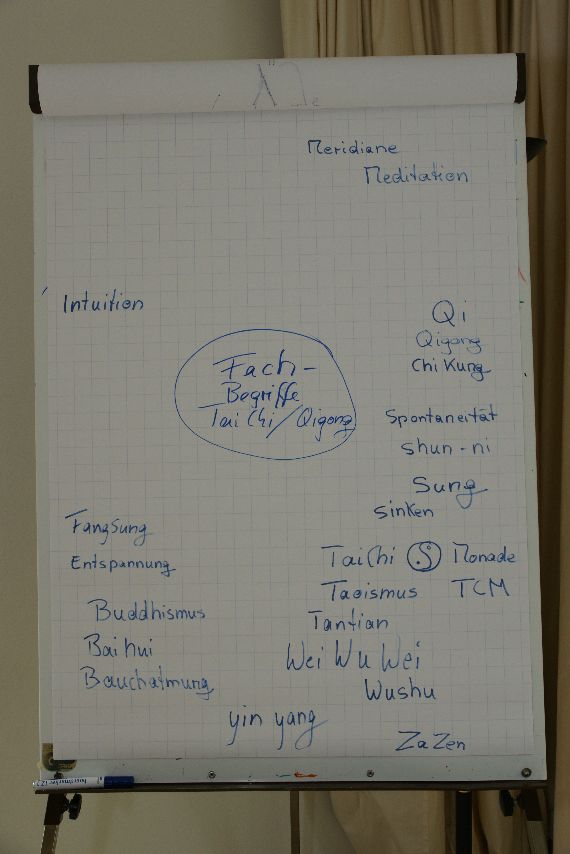 Meridiane
Meditation
Intuition
Qi
Qigong
Chi Kung
Fach-
Begriffe
Tai Chi/Qigong
Spontaneität
shun-ni
Sung
sinken
FangSung
Entspannung
Tai Chi Monade
Taoismus TCM
Buddhismus
Tantian
Bai hui
Wei Wu Wei
Bauchatmung
Wushu
yin yang
ZaZen